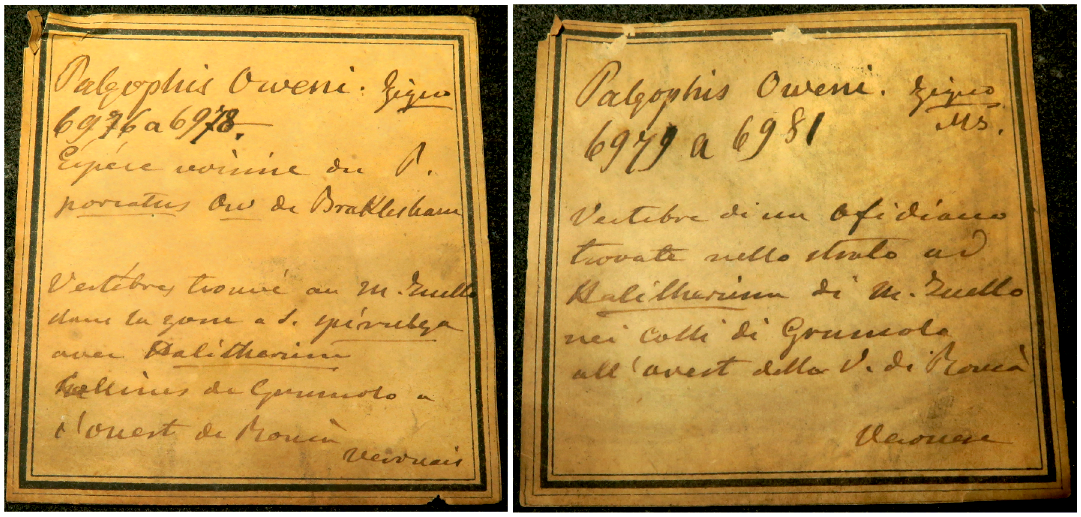 Palæophis Oweni. Zigno
6976 a 6978.
Espéce voisine du P.
porcatus Ow de Braklesham
Vertébres trouvé au M. Zuello
dans la zone a S. spirulæa
avec Halitherium
Collines de Grumolo a
l'ouest de Roncà
Veronais
Palæophis Oweni. Zigno
Ms.
6979 a 6981
Vertebre di un Ofidiano
trovate nello strato ad
Halitherium di M. Zuello
nei colli di Grumolo
all'ovest della V. di Roncà
Veronese